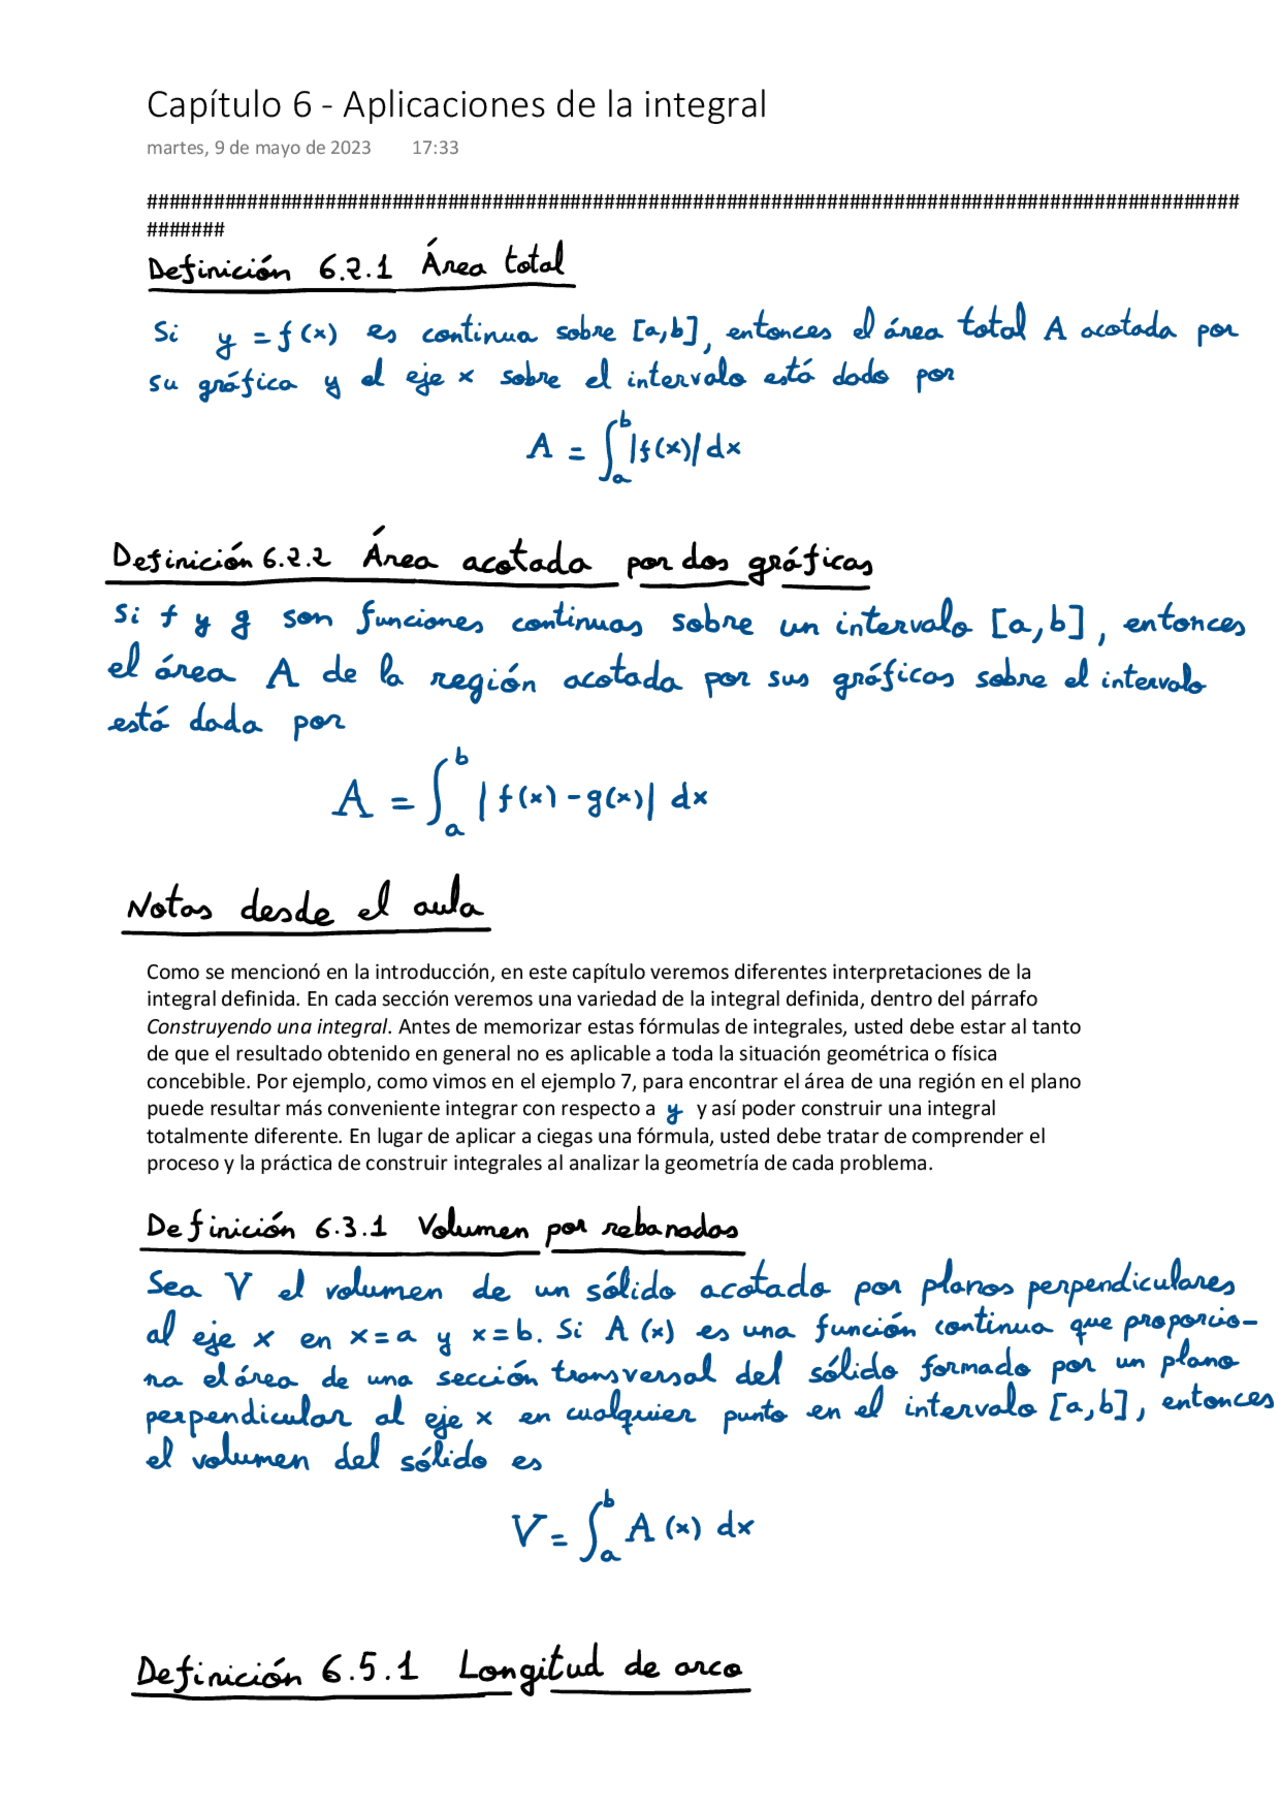 Capítulo 6 - Aplicaciones de la integral
martes, 9 de mayo de 2023 17:33
##################################################################################################
#######
Definición 6.2.1 Área total
Si y = f(x) es continua sobre [a,b], entonces el área total A acotada por
su gráfica y el eje x sobre el intervalo está dado por
A = ∫_a^b |f(x)| dx
Definición 6.2.2 Área acotada por dos gráficas
Si f y g son funciones continuas sobre un intervalo [a,b], entonces
el área A de la región acotada por sus gráficas sobre el intervalo
está dada por
A = ∫_a^b |f(x) - g(x)| dx
Notas desde el aula
Como se mencionó en la introducción, en este capítulo veremos diferentes interpretaciones de la
integral definida. En cada sección veremos una variedad de la integral definida, dentro del párrafo
Construyendo una integral. Antes de memorizar estas fórmulas de integrales, usted debe estar al tanto
de que el resultado obtenido en general no es aplicable a toda la situación geométrica o física
concebible. Por ejemplo, como vimos en el ejemplo 7, para encontrar el área de una región en el plano
puede resultar más conveniente integrar con respecto a y y así poder construir una integral
totalmente diferente. En lugar de aplicar a ciegas una fórmula, usted debe tratar de comprender el
proceso y la práctica de construir integrales al analizar la geometría de cada problema.
Definición 6.3.1 Volumen por rebanadas
Sea V el volumen de un sólido acotado por planos perpendiculares
al eje x en x=a y x=b. Si A(x) es una función continua que proporcio-
na el área de una sección transversal del sólido formado por un plano
perpendicular al eje x en cualquier punto en el intervalo [a,b], entonces
el volumen del sólido es
V = ∫_a^b A(x) dx
Definición 6.5.1 Longitud de arco